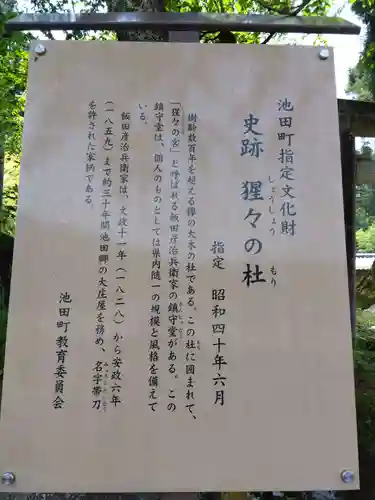 池田町指定文化財
史跡 猩々の杜
しょうじょう もり
指定 昭和四十年六月
樹齢数百年を超える欅の大木の社である。この社に囲まれて、
「猩々の宮」と呼ばれる飯田彦治兵衛家の鎮守堂がある。この
鎮守堂は、個人のものとしては県内随一の規模と風格を備えて
いる。
飯田彦治兵衛家は、文政十一年(一八二八)から安政六年
(一八五九)まで約三十年間池田郷の大庄屋を務め、名字帯刀
を許された家柄である。
池田町教育委員会